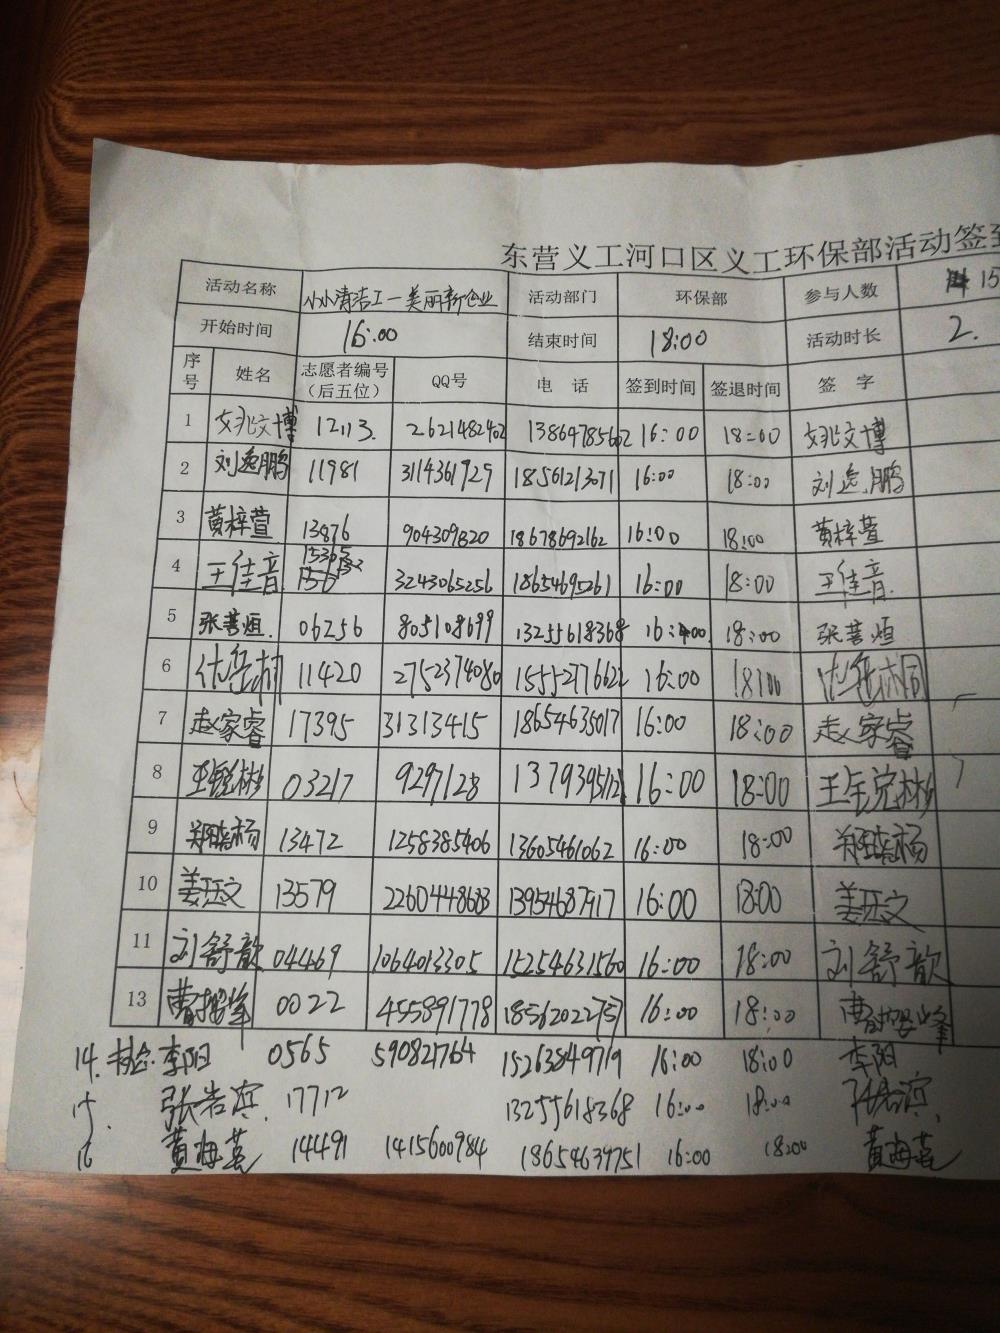 东营义工河口区义工环保部活动签到
活动名称 小小清洁工—美丽新企业 活动部门 环保部 参与人数 15
开始时间 16:00 结束时间 18:00 活动时长 2.
序号 姓名 志愿者编号（后五位） QQ号 电 话 签到时间 签退时间 签 字
1 姚文博 12113. 2621482402 13864785602 16:00 18:00 姚文博
2 刘逸鹏 11981 3114361929 18561213071 16:00 18:00 刘逸鹏
3 黄梓萱 13876 904309820 18678692162 16:00 18:00 黄梓萱
4 王佳音 3243065256 18654695261 16:00 18:00 王佳音
5 张善烜. 06256 805108699 13255618368 16:00 18:00 张善烜
6 11420 2752374080 15552776622 16:00 18:00
7 赵家睿 17395 31313415 18654635017 16:00 18:00 赵家睿
8 王锐彬 03217 9297128 16:00 18:00 王锐彬
9 13472 1258385406 13605461062 16:00 18:00
10 姜珏文 13579 13954687917 16:00 18:00 姜珏文
11 刘舒歆 04469 1064013305 15254631560 16:00 18:00 刘舒歆
13 0022 455891778 18562022757 16:00 18:00
14. 李阳 0565 590821764 15263849719 16:00 18:00 李阳
15. 张岩滨. 17712 13255618368 16:00 18:00 张岩滨.
16 黄海燕 14491 1415600984 18654639751 16:00 18:00 黄海燕